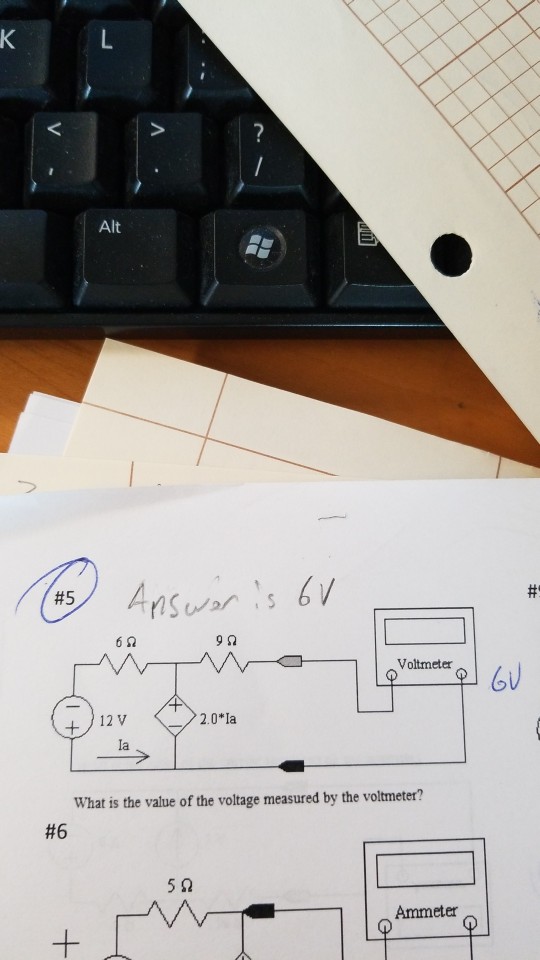 K L :
;
< > ?
, . /
Alt
#5 Answer is 6V
6 Ω 9 Ω
Voltmeter
6V
12 V 2.0*Ia
Ia
What is the value of the voltage measured by the voltmeter?
#6
5 Ω
Ammeter